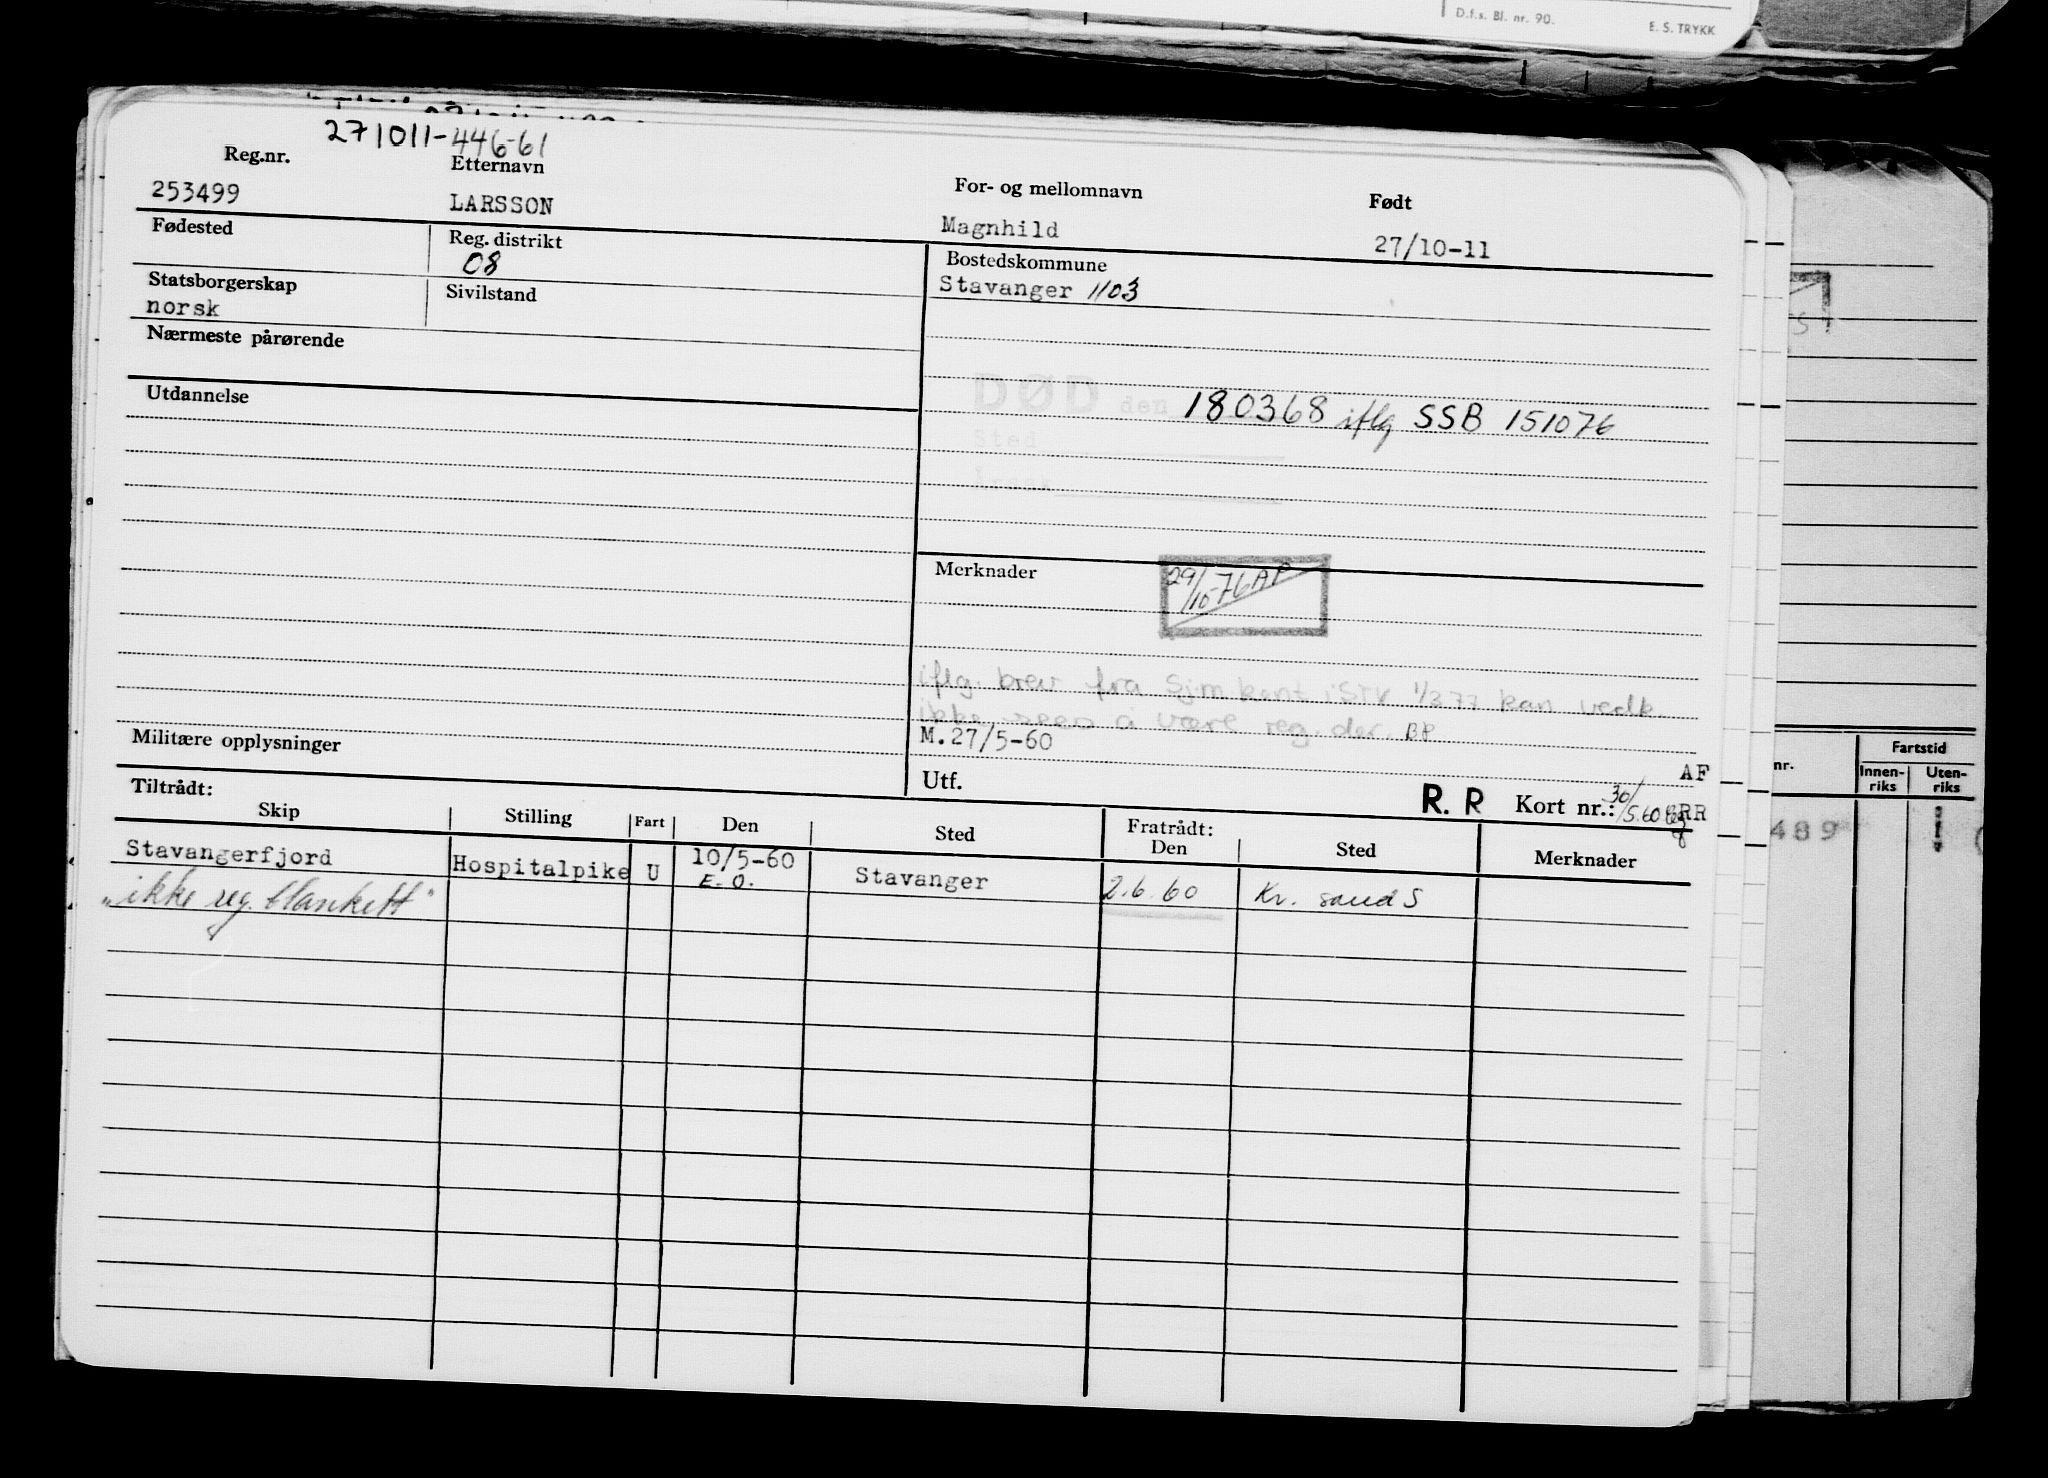 D.f.s. Bl. nr. 90.
E. S. TRYKK
271011-446-61
Reg.nr.
Etternavn
For- og mellomnavn
Født
253499
LARSSON
Magnhild
27/10-11
Fødested
Reg. distrikt
08
Bostedskommune
Stavanger 1103
Statsborgerskap
norsk
Sivilstand
Nærmeste pårørende
Utdannelse
DØD den 180368 iflg SSB 151076
Sted
Årsak
Merknader
29/10-76 AP
iflg. brev fra Sjm kont i STV 1/3 77 kan vedk.
ikke sees å være reg. der. BP
M.27/5-60
Militære opplysninger
AF
Utf.
R. R
Kort nr.: 30/5.60
RR
Tiltrådt:
Skip
Stilling
Fart
Den
Sted
Fratrådt:
Den
Sted
Merknader
Stavangerfjord
Hospitalpike
U
10/5-60
E.O.
Stavanger
2.6.60
Kr. sand S
"ikke reg. blankett"
nr.
Fartstid
Innen-
riks
Uten-
riks
489